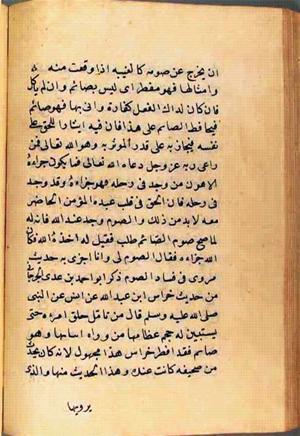 ان يخرج عن صومه كالغيبه اذا وقعت منه
وامثالها فهو مفطر اى ليس بصائم وان لم ياكل
فان كان لذاك الفعل كفارة واتى بها فهو صائم
فيحافظ الصائم على هذا فان فيه ايثارا للحق على
نفسه فيجازيه على قدر الموثر به وهو الله تعالى فمن
راعى ربه عز وجل دعاه الله تعالى فما يكون جزاءه
الا هو من وجد فى رحله فهو جزاءه وقد وجد
فى رحله فان الحق فى قلب عبده المؤمن الحاضر
معه لا بد من ذلك والصوم وجد عند الله فانه له
لما صح صوم الصائم طلب فقيل له اخذه الله فكان
الله جزاءه فقال الصوم لى وانا اجزى به حديث
مروى فى فساد الصوم ذكر ابو احمد بن عدى الجرجانى
من حديث خراس ابن عبد الله عن انس عن النبى
صلى الله عليه وسلم قال من تامل خلق امرءة حتى
يستبين له حجم عظامها من وراء اساجها وهو
صائم فقد افطر خراس هذا مجهول لانه كان يحدث
من صحيفه كانت عنده وهذا الحديث منها والذى
يرويها